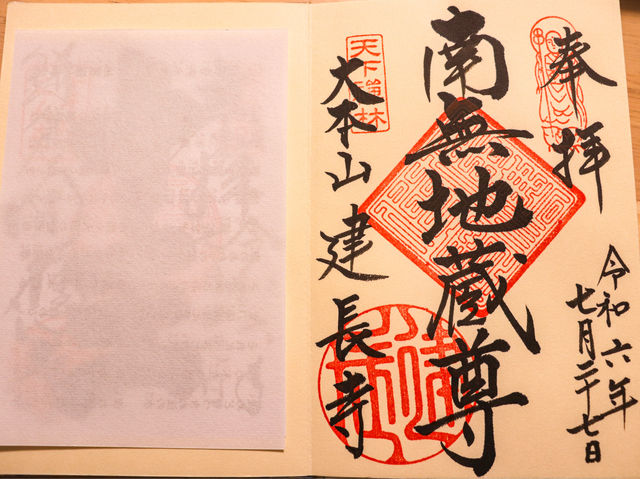 奉拝
令和六年
七月二十七日
南無地蔵尊
天下禅林
大本山建長寺